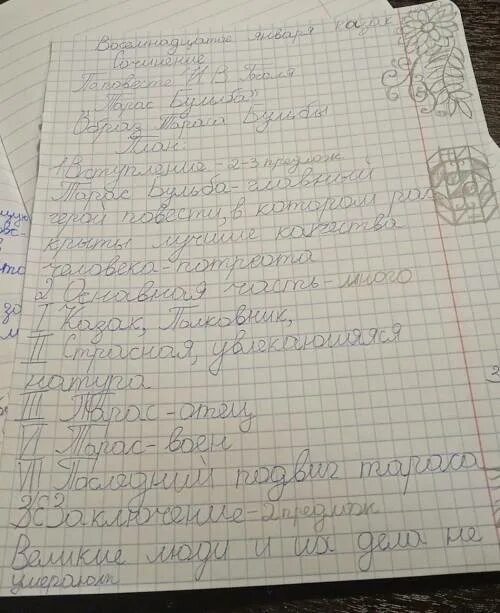 Восемнадцатое января казак
Сочинение
По повести Н В Гоголя
"Тарас Бульба"
Образ Тараса Бульбы
План:
1 Вступление - 2-3 предлож
Тарас Бульба - главный
герой повести, в котором рас
крыты лучшие качества
человека - потреота
2 Основная часть - много
I Казак, Полковник,
II Страсная, увлекающаяся
натура
III Тарас - отец
VI Тарас - воен
VI Последний подвиг тараса
Заключение - 2 предлож
Великие люди и их дела не
умерают